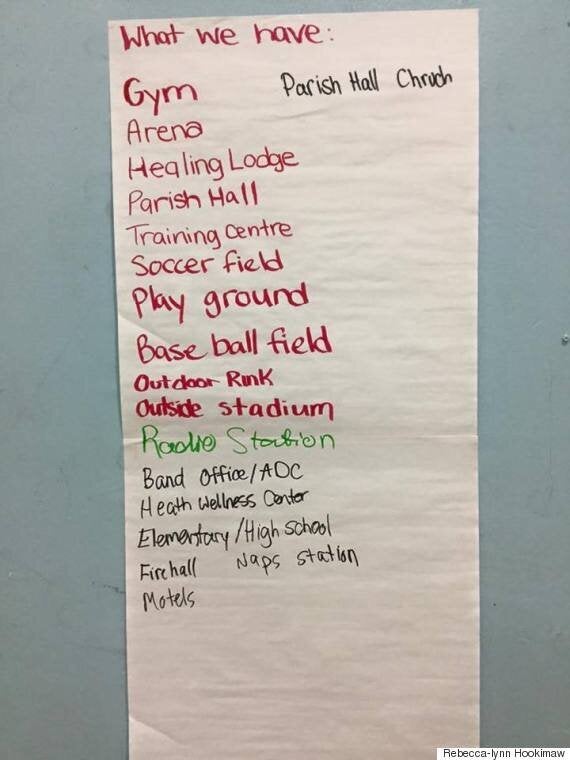 What we have:
Gym Parish Hall Chruch
Arena
Healing Lodge
Parish Hall
Training Centre
Soccer field
Play ground
Base ball field
Outdoor Rink
Outside stadium
Radio Station
Band Office/ADC
Heath Wellness Center
Elementary/High School
Firehall Naps station
Motels
Rebecca-lynn Hookimaw